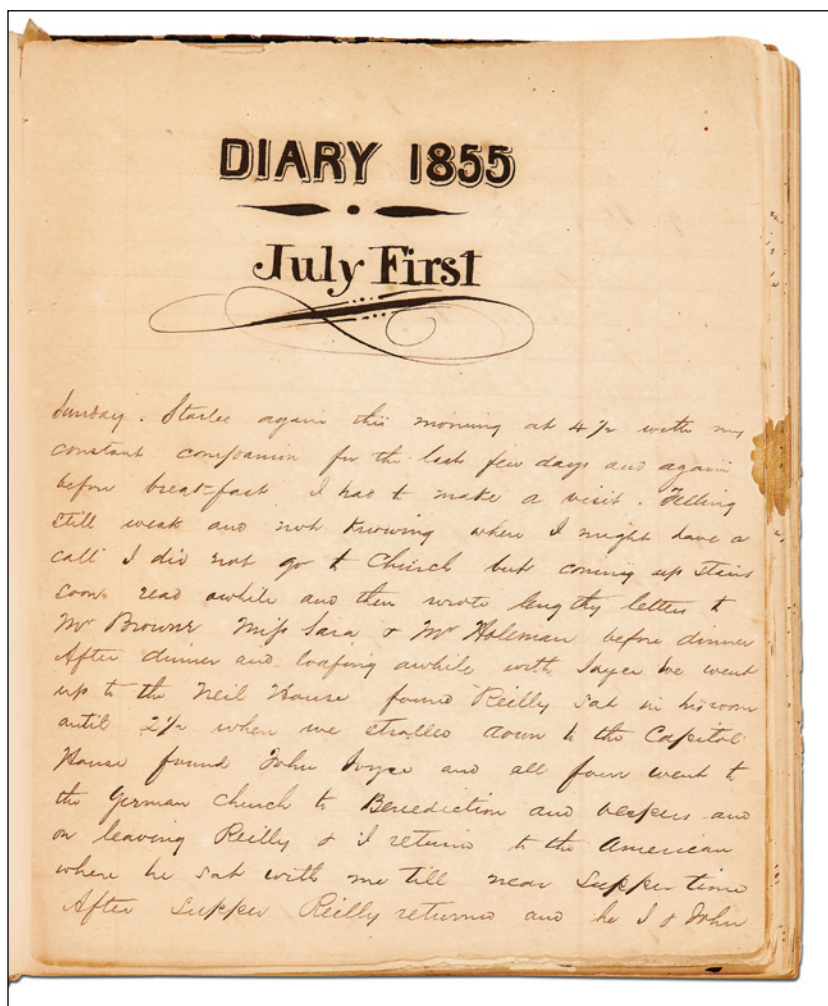 DIARY 1855
July First
Sunday. Started again this morning at 4½ with my
constant companion for the last few days and again
before breakfast I had to make a visit. Felling
still weak and not knowing where I might have a
call I did not go to Church but coming up stairs
soon read awhile and then wrote lengthy letters to
Mr Browne Miss Sara & Mr Holeman before dinner
After dinner and loafing awhile with Joyce we went
up to the Neil House found Reilly sat in his room
until 2½ when we strolled down to the Capitol
House found John Joyce and all four went to
the German Church to Benediction and vespers and
on leaving Reilly & I returned to the American
where he sat with me till near supper time
After supper Reilly returned and he I & John